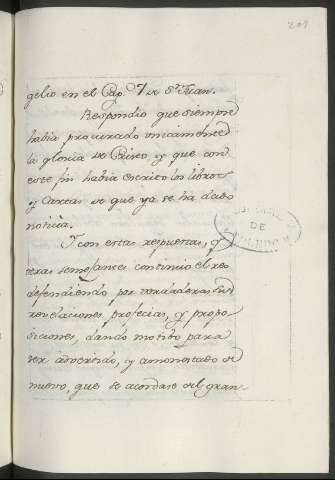 gelio en el Cap. 7 de Sn Juan.
Respondio que siempre
habia procurado unicamente
la gloria de Cristo y que con
este fin habia escrito los libros
y Cartas de que ya se ha dado
noticia.
Y con estas respuestas, y
otras semejantes continuó el reo
defendiendo por verdaderas sus
revelaciones, profecias, y propo
siciones, dando motibo para
ser advertido, y amonestado de
nuevo, que se acordase del gran-
DE